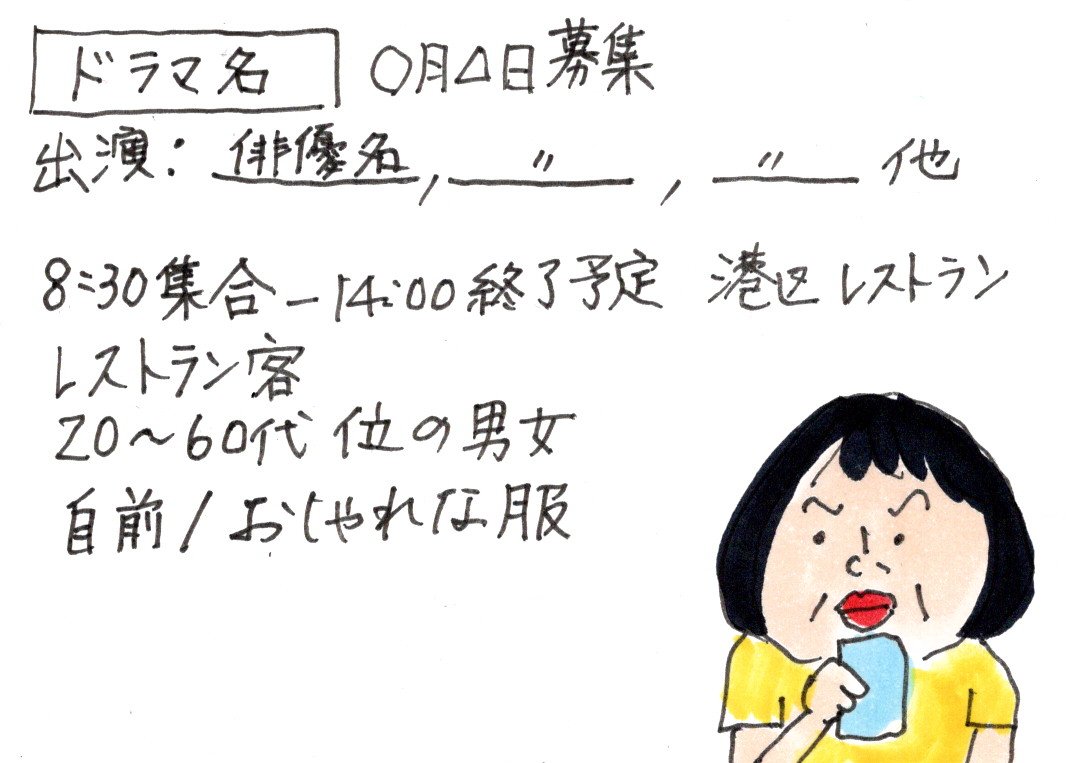 ドラマ名 〇月△日募集
出演：俳優名, 〃 , 〃 他
8:30集合-14:00終了予定 港区レストラン
レストラン客
20～60代位の男女
自前/おしゃれな服